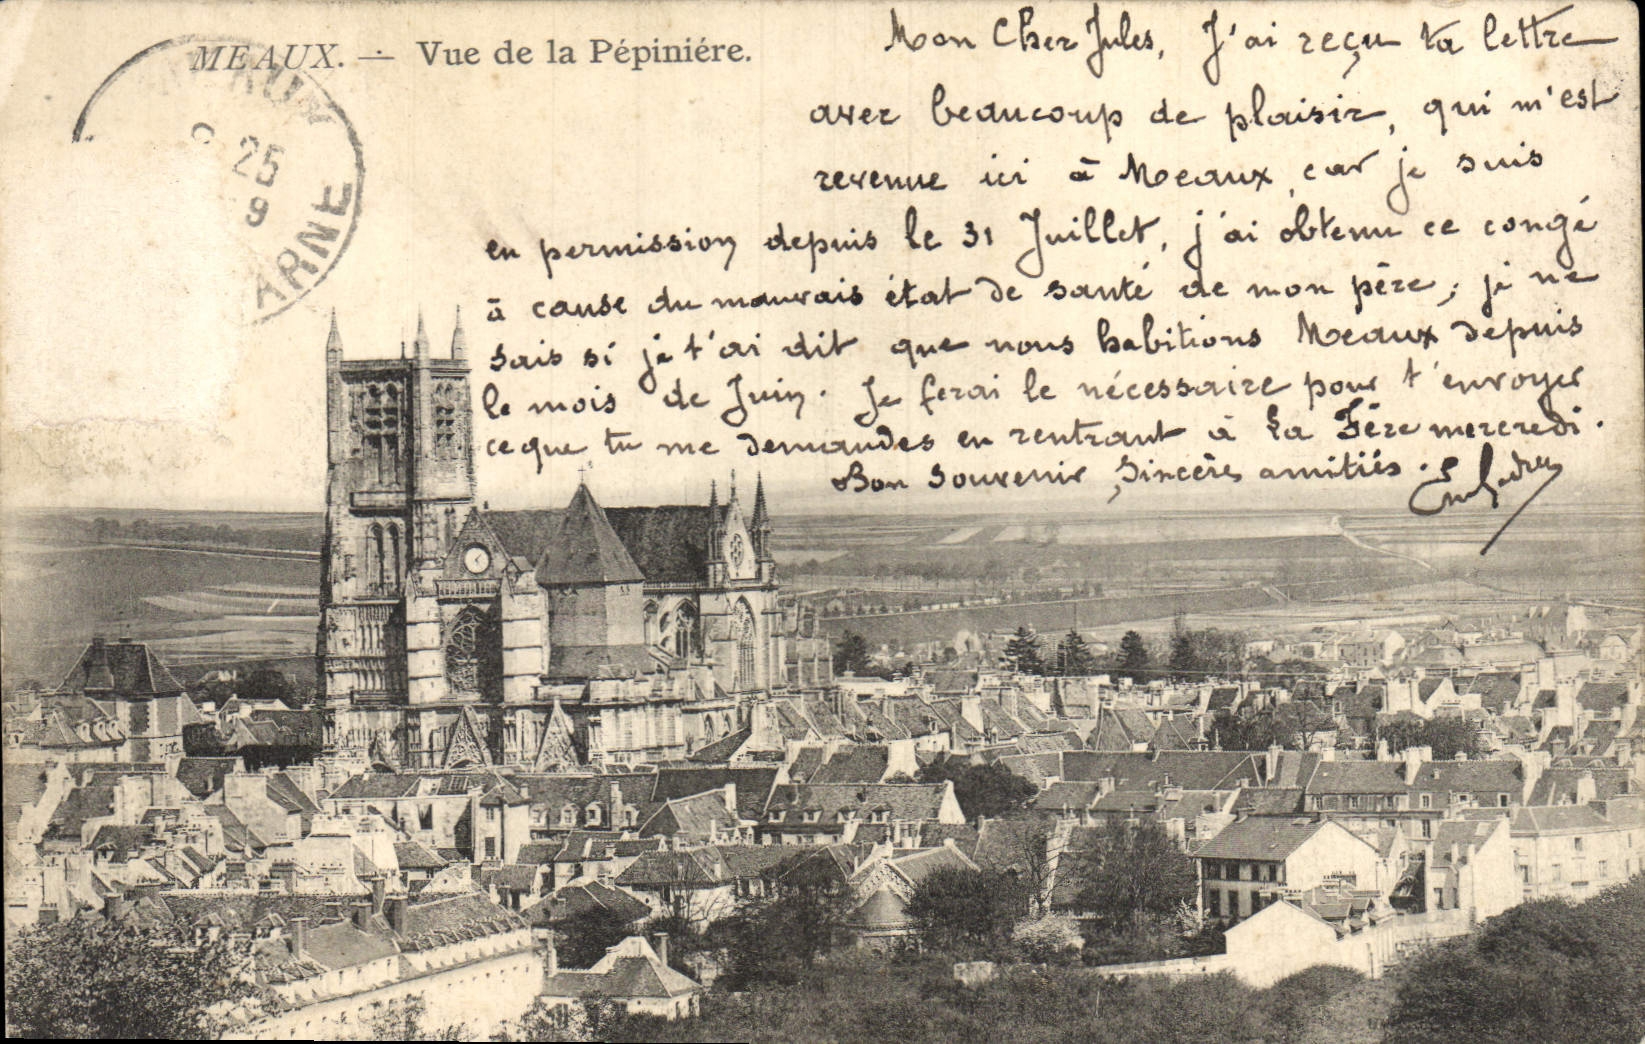 MEAUX. — Vue de la Pépiniére.
25
9
ARNE
Mon Cher Jules, J'ai reçu ta lettre
avec beaucoup de plaisir, qui m'est
revenue ici à Meaux, car je suis
en permission depuis le 31 Juillet, j'ai obtenu ce congé
à cause du mauvais état de santé de mon père, je ne
sais si je t'ai dit que nous habitions Meaux depuis
le mois de Juin. Je ferai le nécessaire pour t'envoyer
ce que tu me demandes en rentrant à La Fère mercredi.
Bon Souvenir, Sincères amitiés.